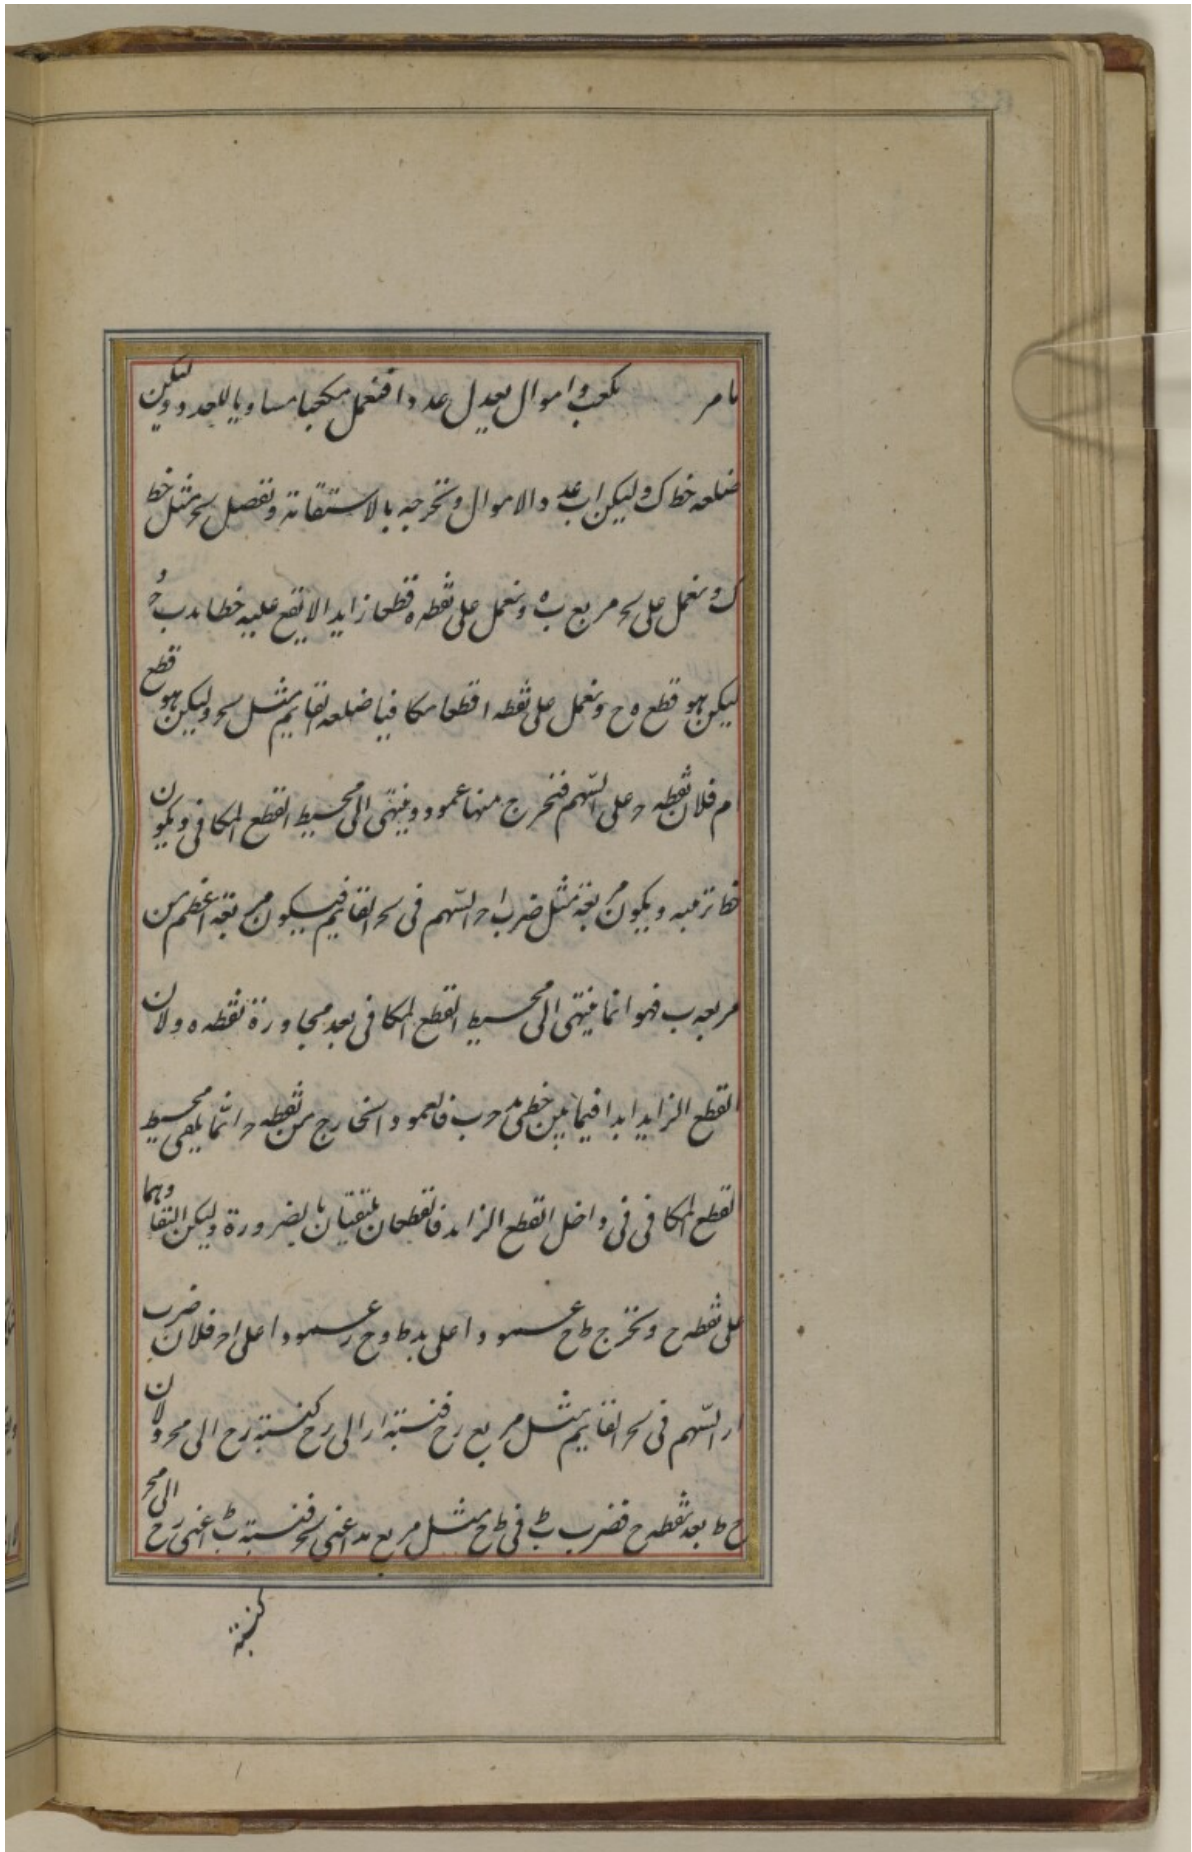 مامر مكعب واموال يعدل عددا فنعمل مكعبا مساويا للعدد وليكن
ضلعه خط ك وليكن اب عدد الاموال ونخرجه بالاستقامة ونفصل بحر مثل خط
ك ونعمل على بحر مربع ب ه ونعمل على نقطه ه قطعا زايدا لا يقع عليه خطا بد ب ح و
ليكن هو قطع ه ح ونعمل على نقطه ا قطعا مكافيا ضلعه القايم مثل بحر وليكن هو قطع
ام فلان نقطه ح على السّهم فنخرج منها عمودا وينتهى الى محيط القطع المكافى ويكون
خط ترتيبه ويكون مربعه مثل ضرب اح السّهم فى بحر القايم فيكون مربعه اعظم من
مربعه ب فهو انما ينتهى الى محيط القطع المكافى بعد مجاورة نقطه ه ولان
القطع الزايد ابدا فيما بين خطى مد ح ب فالعمود الخارج من نقطه ح انّما يلقى محيط
القطع المكافى فى داخل القطع الزايد فالقطعان يلتقيان بالضرورة وليكن التقاوهما
على نقطه ح ونخرج ط ح عمودا على بد ط و ح ر عمودا على اح فلان ضرب
ار السّهم فى بحر القايم مثل مربع رح فنسبة ار الى رح كنسبة رح الى بحر ولان
ح ط بعد نقطه ح فضرب ب ط فى ط ح مثل مربع بد اعنى بحر فنسبة ب ط اعنى رح الى بحر
كنسبة